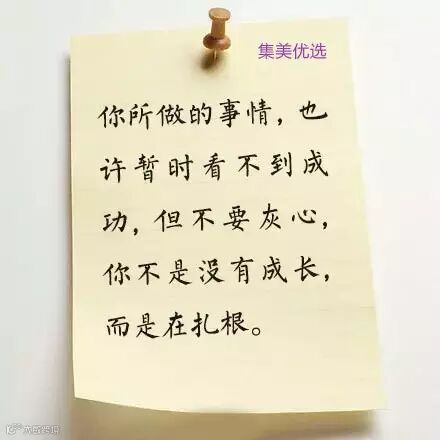 集美优选
你所做的事情，也
许暂时看不到成
功，但不要灰心，
你不是没有成长，
而是在扎根。